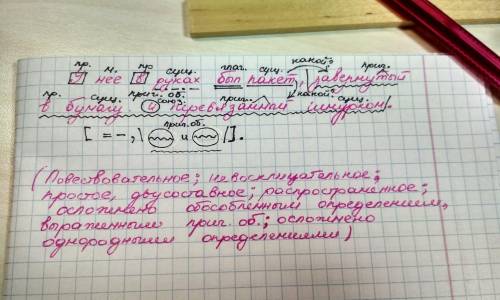 пр. м. пр. сущ. глаг. сущ. какой? прич.
У нее в руках был пакет, завернутый
пр. сущ. прич. об. союз. прич. какой? сущ.
в бумагу и перевязанный шнурком.
прич. об.
[ = –, | и |].
(Повествовательное; невосклицательное;
простое, двусоставное; распространенное;
осложнено обособленным определением,
выраженным прич. об.; осложнено
однородными определениями)